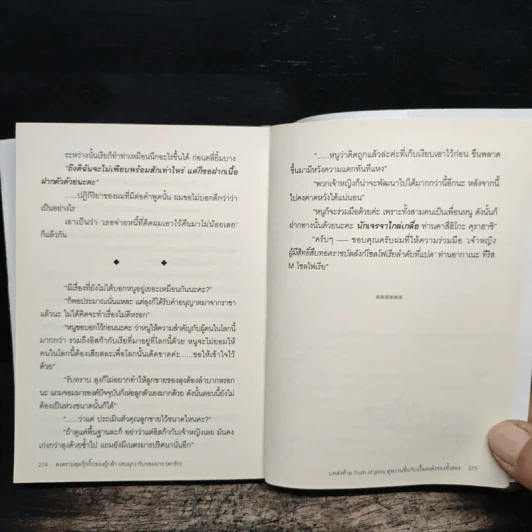 ระหว่างนั้นเรียก็ทำท่าเหมือนนึกอะไรขึ้นได้ ก่อนคลี่ยิ้มบาง
"ถึงดิฉันจะไม่เพียบพร้อมสักเท่าไหร่ แต่ก็ขอฝากเนื้อ
ฝากตัวด้วยนะคะ"
......ปฏิกิริยาของผมที่มีต่อคำพูดนั้น ผมขอไม่บอกดีกว่าว่า
เป็นอย่างไร
เอาเป็นว่า
ก็แล้วกัน
"มีเรื่องที่ยังไม่ได้บอกหนูอยู่เยอะเหมือนกันนะคะ?"
"ก็พอประมาณนั่นแหละ แต่ลุงก็ได้รับคำอนุญาตมาจากราชา
แล้วนะ ไม่ได้คิดจะทำเรื่องไม่ดีหรอก"
"หนูขอบอกไว้ก่อนนะคะ ว่าหนูให้ความสำคัญกับผู้คนในโลกนี้
มากกว่า รวมถึงอิสก้ากับเรียที่มาอยู่ที่โลกนี้ด้วย หนูจะไม่ยอมให้
คนในโลกนี้ต้องเสียสละเพื่อโลกนั้นเด็ดขาดค่ะ......ขอให้เข้าใจไว้
ด้วย"
"รับทราบ ลุงก็ไม่อยากทำให้ลูกชายของลุงต้องลำบากหรอก
นะ แถมจอมมารองค์ปัจจุบันก็เพื่อลูกตัวเองมากด้วย ดังนั้นตอนนี้ยังไม่
ต้องเป็นห่วงขนาดนั้นก็ได้"
"......ว่าแต่ ประเมินตัวคุณลูกชายไว้ขนาดไหนคะ?"
"ถ้าดูแค่พื้นฐานละก็ อย่าว่าแต่อิสก้ากับเจ้าหญิงเลย มันคง
เก่งกว่าลุงด้วยซ้ำไป แถมยังมีเนตรมารปริศนานั่นอีก"
274
"......หนูว่าคิดถูกแล้วล่ะค่ะที่เก็บเงียบเอาไว้ก่อน ขืนพลาด
ขึ้นมามีหวังความแตกทันทีแหง"
"พวกเจ้าหญิงก็น่าจะพัฒนาไปได้มากกว่านี้อีกนะ หลังจากนี้
ไปคงคาดหวังได้แน่นอน"
"หนูก็จะร่วมมือด้วยค่ะ เพราะทั้งสามคนเป็นเพื่อนหนู ดังนั้นก็
ฝากทางนั้นด้วยนะคะ นักเจรจาไกล่เกลี่ย ท่านคาสึฮิโกะ คุราฮาชิ"
"ครับๆ —— ขอบคุณครับผมที่ให้ความร่วมมือ
ผู้มีสิทธิ์สืบทอดราชบัลลังก์โซลโฟเรียลำดับที่แปด' ท่านอากาเนะ ทีริส
M โซลโฟเรีย"
******
275